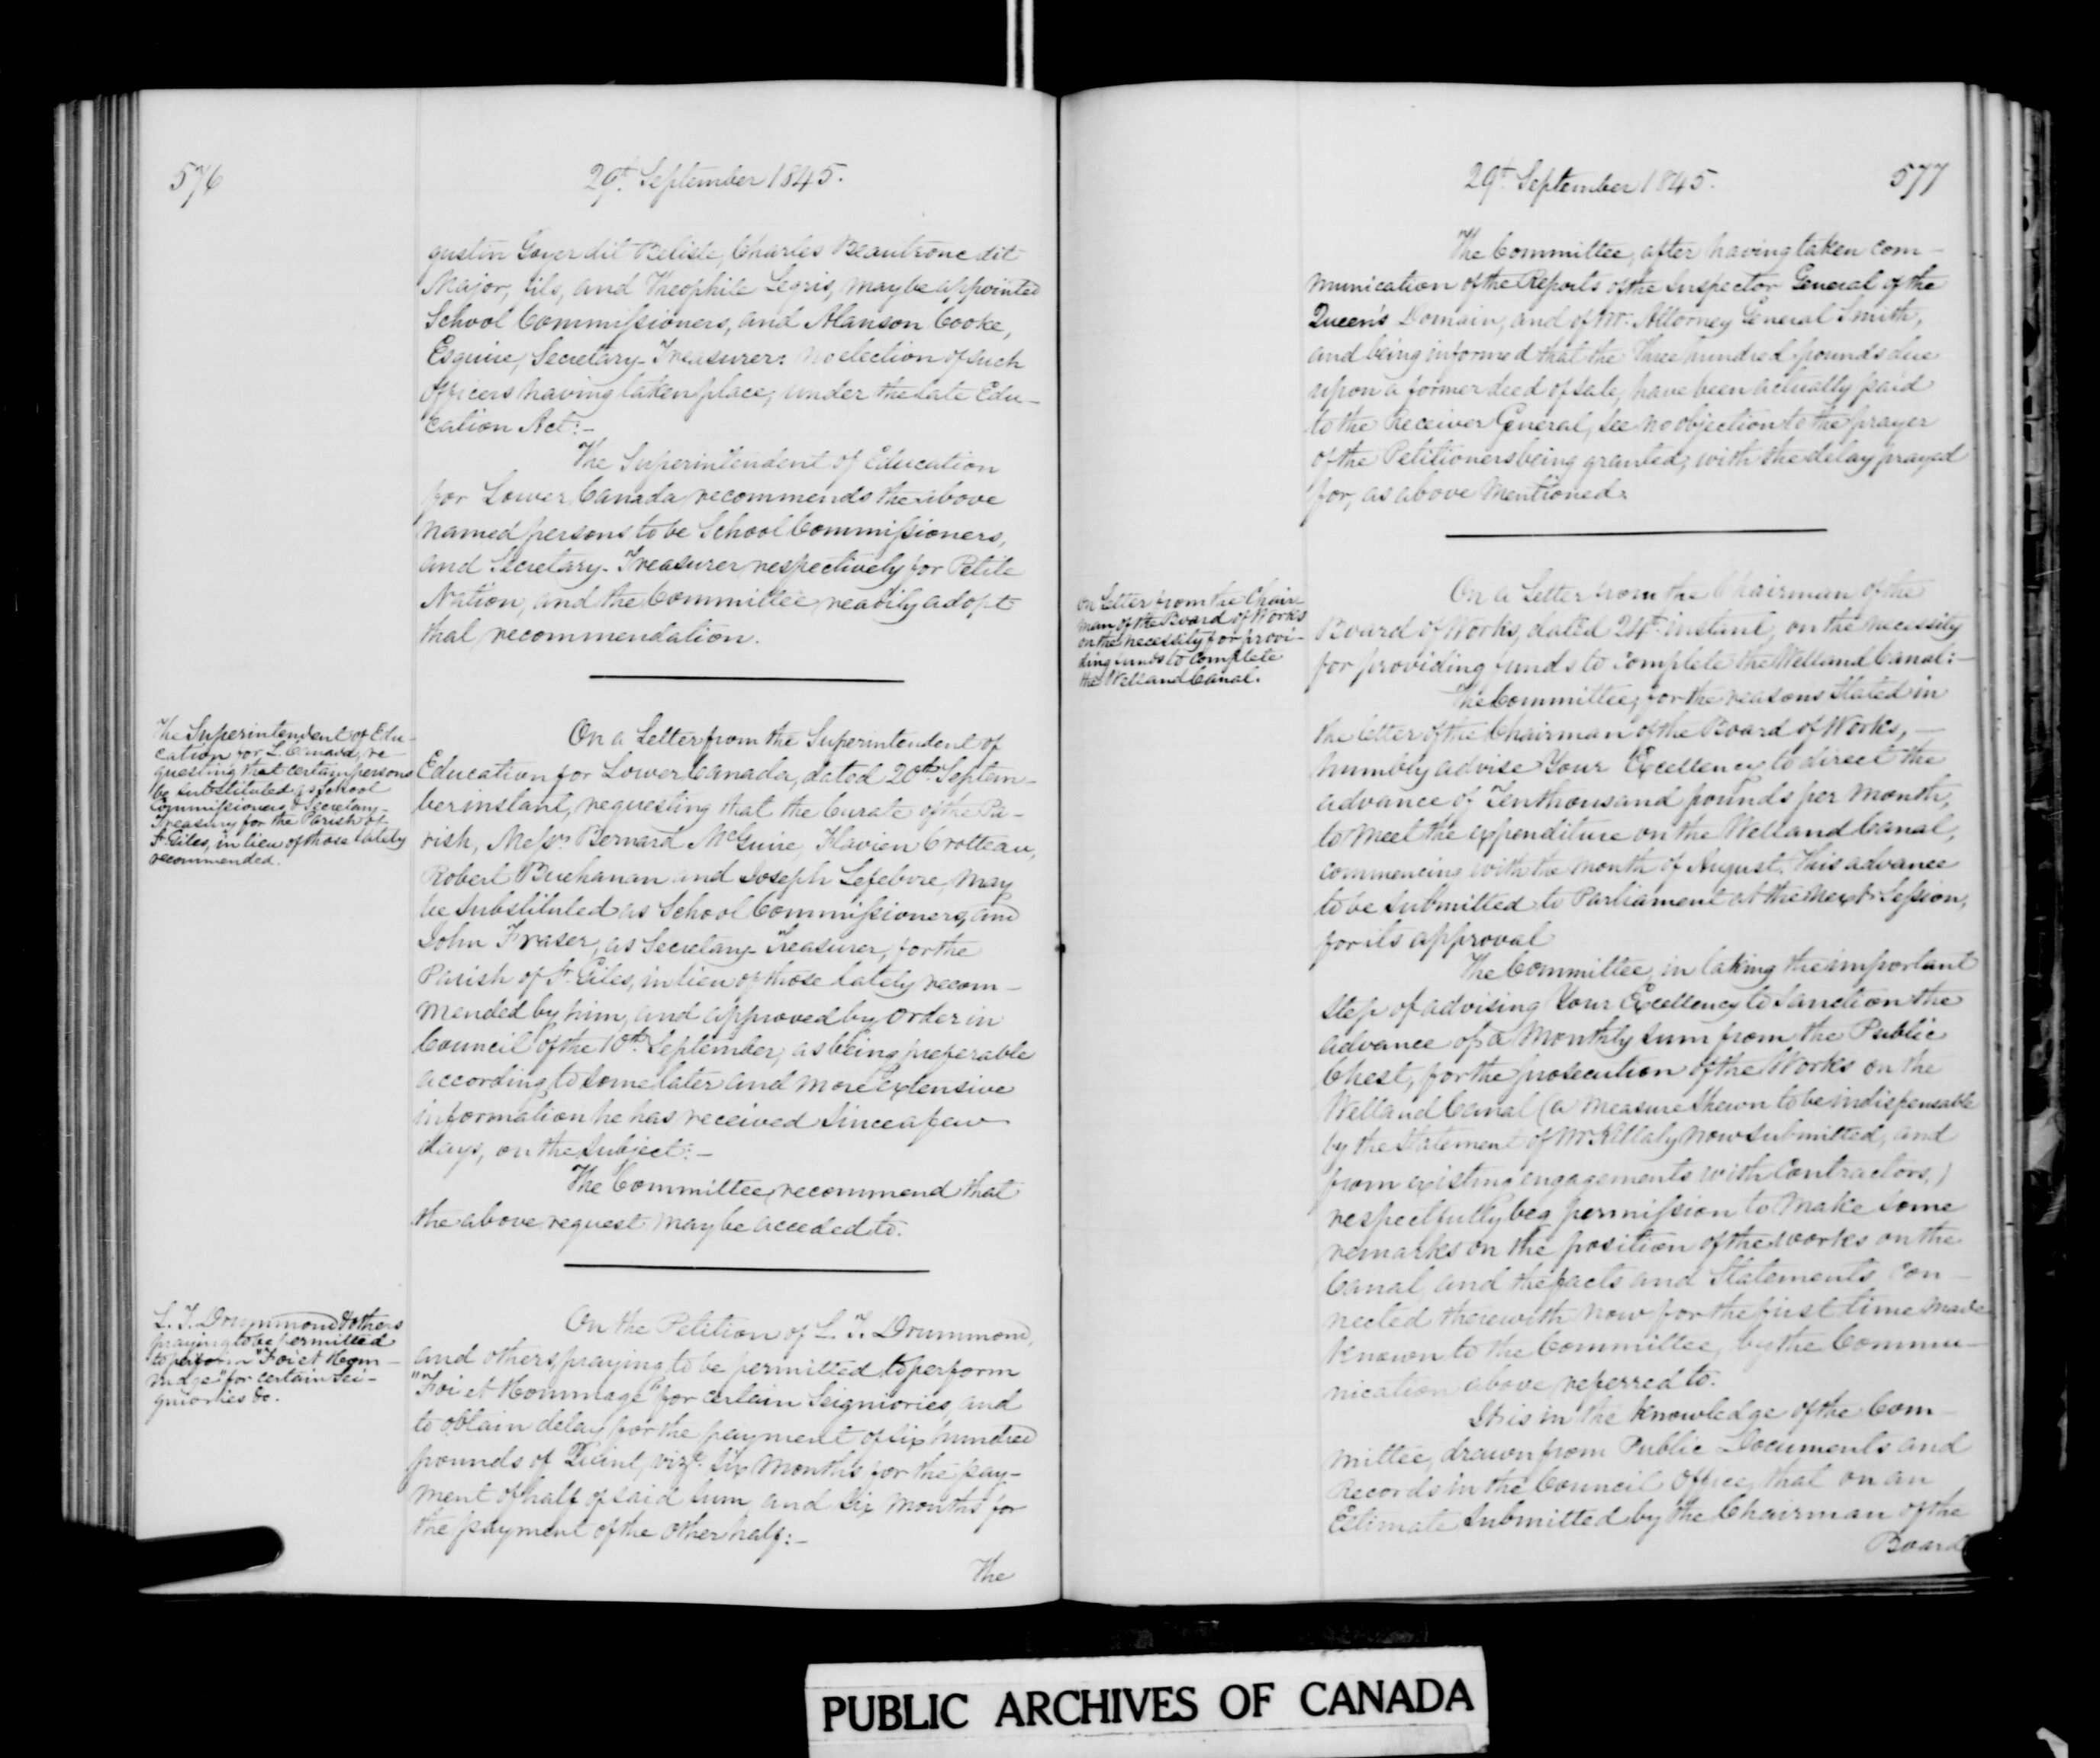 576
29th September 1845.
gustin Goyer dit Belisle, Charles Beautrone dit
Major, fils, and Theophile Legris, may be appointed
School Commissioners, and Alanson Cooke,
Esquire, Secretary-Treasurer: no election of such
Officers having taken place, under the late Edu-
cation Act:-
The Superintendent of Education
for Lower Canada, recommends the above
named persons to be School Commissioners,
and Secretary-Treasurer, respectively for Petite
Nation, and the Committee, readily adopt
that recommendation.
The Superintendent of Edu-
cation for L. Canada, re-
questing that certain persons
be substituted as School
Commissioners & Secretary-
Treasury for the Parish of
St Giles, in lieu of those lately
recommended.
On a Letter from the Superintendent of
Education for Lower Canada, dated 20th Septem-
ber instant, requesting that the Curate of the Pa-
rish, Messrs Bernard McGuire, Flavien Crotteau,
Robert Buchanan and Joseph Lefebvre, may
be substituted as School Commissioners, and
John Fraser, as Secretary-Treasurer, for the
Parish of St Giles, in lieu of those lately recom-
mended by him, and approved by Order in
Council of the 10th September, as being preferable
according to some later and more extensive
information he has received since a few
days, on the subject:-
The Committee, recommend that
the above request may be acceded to.
L. T. Drummond & others
praying to be permitted
to perform "Foi et Hom-
mage" for certain Sei-
gniories &c.
On the Petition of L. T. Drummond,
and others, praying to be permitted to perform
"Foi et Hommage" for certain Seigniories, and
to obtain delay for the payment of six hundred
pounds of Quint, vizt. six months for the pay-
ment of half of said sum, and six months for
the payment of the other half:-
The
29th September 1845.
577
The Committee, after having taken com-
munication of the Reports of the Inspector General of the
Queen's Domain, and of Mr. Attorney General Smith,
and being informed that the three hundred pounds due
upon a former deed of sale, have been actually paid
to the Receiver General, see no objection to the prayer
of the Petitioners being granted, with the delay prayed
for, as above mentioned.
On Letter from the Chair-
man of the Board of Works
on the necessity for provi-
ding funds to complete
the Welland Canal.
On a Letter from the Chairman of the
Board of Works, dated 24th instant, on the necessity
for providing funds to complete the Welland Canal:-
The Committee, for the reasons stated in
the letter of the Chairman of the Board of Works,-
humbly advise Your Excellency to direct the
advance of Ten thousand pounds per month,
to meet the expenditure on the Welland Canal,
commencing with the month of August. This advance
to be submitted to Parliament at the next Session,
for its approval
The Committee, in taking the important
step of advising Your Excellency to sanction the
advance of a monthly sum from the Public
Chest, for the prosecution of the Works on the
Welland Canal (a measure shewn to be indispensable
by the statement of Mr Killaly now submitted, and
from existing engagements with Contractors,)
respectfully beg permission to make some
remarks on the position of the works on the
Canal, and the facts and statements con-
nected therewith now for the first time made
known to the Committee, by the Commu-
nication above referred to.
It is in the knowledge of the Com-
mittee, drawn from Public Documents and
Records in the Council Office, that on an
Estimate submitted by the Chairman of the
Board
PUBLIC ARCHIVES OF CANADA